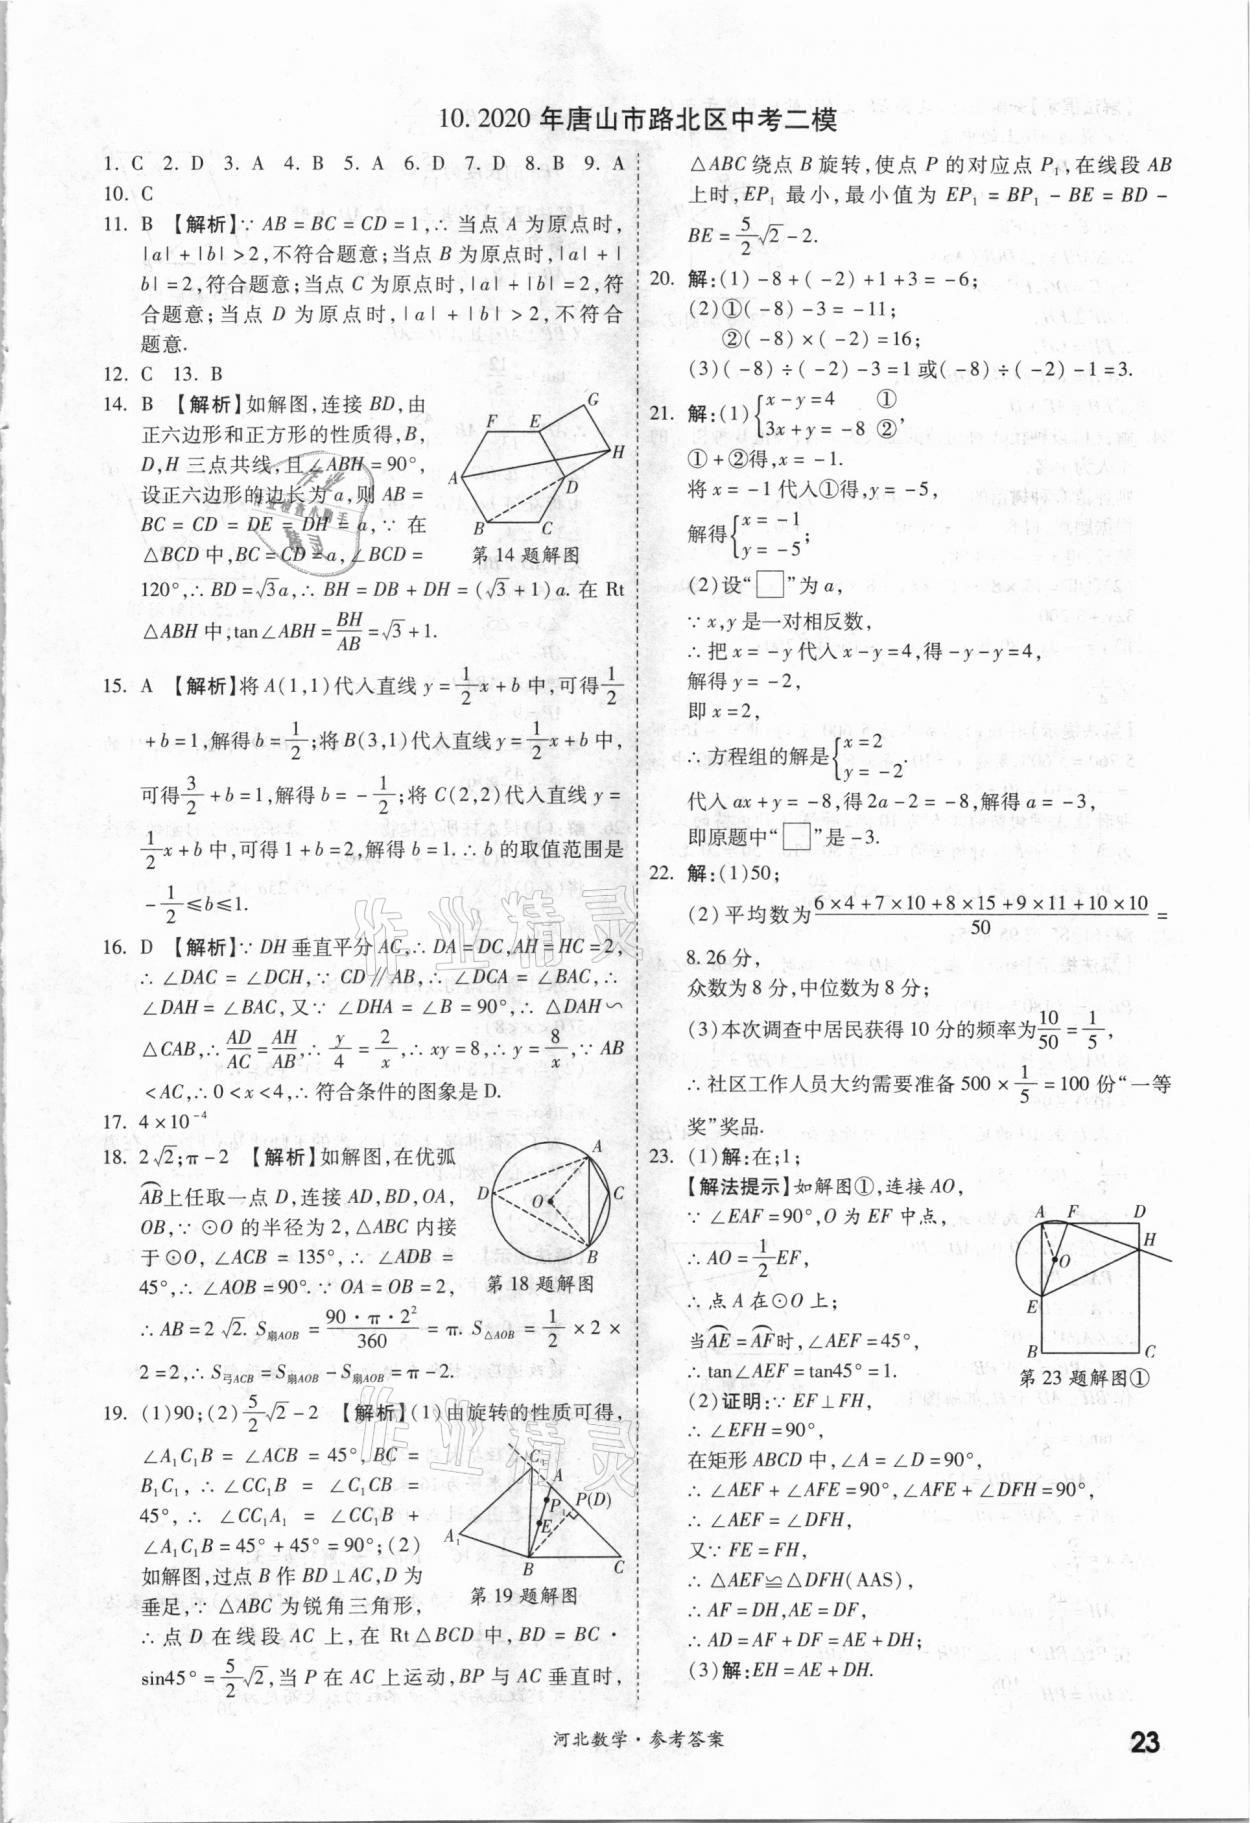 10. 2020 年唐山市路北区中考二模
1. C  2. D  3. A  4. B  5. A  6. D  7. D  8. B  9. A
10. C
11. B 【解析】∵ AB = BC = CD = 1,∴ 当点 A 为原点时,
|a| + |b| > 2,不符合题意;当点 B 为原点时,|a| + |
b| = 2,符合题意;当点 C 为原点时,|a| + |b| = 2,符
合题意;当点 D 为原点时,|a| + |b| > 2,不符合
题意.
12. C  13. B
14. B 【解析】如解图,连接 BD,由
正六边形和正方形的性质得,B,
D,H 三点共线,且∠ABH = 90°,
设正六边形的边长为 a,则 AB =
BC = CD = DE = DH = a,∵ 在
△BCD 中,BC = CD = a,∠BCD =
A B C D E F G H
第 14 题解图
120°,∴ BD = √3a,∴ BH = DB + DH = (√3 + 1)a. 在 Rt
△ABH 中,tan∠ABH = BH/AB = √3 + 1.
15. A 【解析】将 A(1,1)代入直线 y = 1/2 x + b 中,可得 1/2
+ b = 1,解得 b = 1/2;将 B(3,1)代入直线 y = 1/2 x + b 中,
可得 3/2 + b = 1,解得 b = - 1/2;将 C(2,2)代入直线 y =
1/2 x + b 中,可得 1 + b = 2,解得 b = 1. ∴ b 的取值范围是
- 1/2 ≤ b ≤ 1.
16. D 【解析】∵ DH 垂直平分 AC,∴ DA = DC,AH = HC = 2,
∴ ∠DAC = ∠DCH,∵ CD∥AB,∴ ∠DCA = ∠BAC,∴
∠DAH = ∠BAC,又∵ ∠DHA = ∠B = 90°,∴ △DAH∽
△CAB,∴ AD/AC = AH/AB,∴ y/4 = 2/x,∴ xy = 8,∴ y = 8/x,∵ AB
< AC,∴ 0 < x < 4,∴ 符合条件的图象是 D.
17. 4 × 10⁻⁴
18. 2√2;π - 2 【解析】如解图,在优弧
AB上任取一点 D,连接 AD,BD,OA,
OB,∵ ⊙O 的半径为 2,△ABC 内接
于⊙O, ∠ACB = 135°,∴ ∠ADB =
45°,∴ ∠AOB = 90°. ∵ OA = OB = 2,
A B C D O
第 18 题解图
∴ AB = 2√2. S扇AOB = 90·π·2²/360 = π. S△AOB = 1/2 × 2 ×
2 = 2,∴ S弓ACB = S扇AOB - S扇AOB = π - 2.
19. (1)90;(2) 5/2 √2 - 2 【解析】(1)由旋转的性质可得,
∠A₁C₁B = ∠ACB = 45°, BC =
B₁C₁, ∴ ∠CC₁B = ∠C₁CB =
45°, ∴ ∠CC₁A₁ = ∠CC₁B +
∠A₁C₁B = 45° + 45° = 90°;(2)
如解图,过点 B 作 BD⊥AC,D 为
垂足,∵ △ABC 为锐角三角形,
C₁ A P₁ P(D) E A₁ B C
第 19 题解图
∴ 点 D 在线段 AC 上,在 Rt△BCD 中,BD = BC·
sin45° = 5/2 √2,当 P 在 AC 上运动,BP 与 AC 垂直时,
△ABC 绕点 B 旋转,使点 P 的对应点 P₁,在线段 AB
上时,EP₁ 最小,最小值为 EP₁ = BP₁ - BE = BD -
BE = 5/2 √2 - 2.
20. 解:(1) - 8 + ( - 2) + 1 + 3 = - 6;
(2)①( - 8) - 3 = - 11;
②( - 8) × ( - 2) = 16;
(3)( - 8) ÷ ( - 2) - 3 = 1 或( - 8) ÷ ( - 2) - 1 = 3.
21. 解:(1) { x - y = 4 ①
3x + y = - 8 ② ,
① + ②得,x = - 1.
将 x = - 1 代入①得,y = - 5,
解得 { x = - 1
y = - 5 ;
(2)设“□”为 a,
∵ x,y 是一对相反数,
∴ 把 x = - y 代入 x - y = 4,得 - y - y = 4,
解得 y = - 2,
即 x = 2,
∴ 方程组的解是 { x = 2
y = - 2 .
代入 ax + y = - 8,得 2a - 2 = - 8,解得 a = - 3,
即原题中“□”是 - 3.
22. 解:(1)50;
(2)平均数为 6 × 4 + 7 × 10 + 8 × 15 + 9 × 11 + 10 × 10/50 =
8. 26 分,
众数为 8 分,中位数为 8 分;
(3)本次调查中居民获得 10 分的频率为 10/50 = 1/5,
∴ 社区工作人员大约需要准备 500 × 1/5 = 100 份“一等
奖”奖品.
23. (1)解:在;1;
【解法提示】如解图①,连接 AO,
∵ ∠EAF = 90°,O 为 EF 中点,
∴ AO = 1/2 EF,
∴ 点 A 在⊙O 上;
当AE = AF时,∠AEF = 45°,
∴ tan∠AEF = tan45° = 1.
A F D H O E B C
第 23 题解图①
(2)证明:∵ EF⊥FH,
∴ ∠EFH = 90°,
在矩形 ABCD 中,∠A = ∠D = 90°,
∴ ∠AEF + ∠AFE = 90°,∠AFE + ∠DFH = 90°,
∴ ∠AEF = ∠DFH,
又∵ FE = FH,
∴ △AEF≌△DFH(AAS),
∴ AF = DH,AE = DF,
∴ AD = AF + DF = AE + DH;
(3)解:EH = AE + DH.
河北数学·参考答案
23
作业精灵
作业精灵